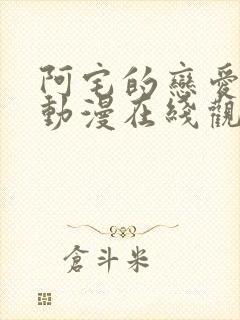 阿宅的戀愛
動漫在綫觀
倉斗米